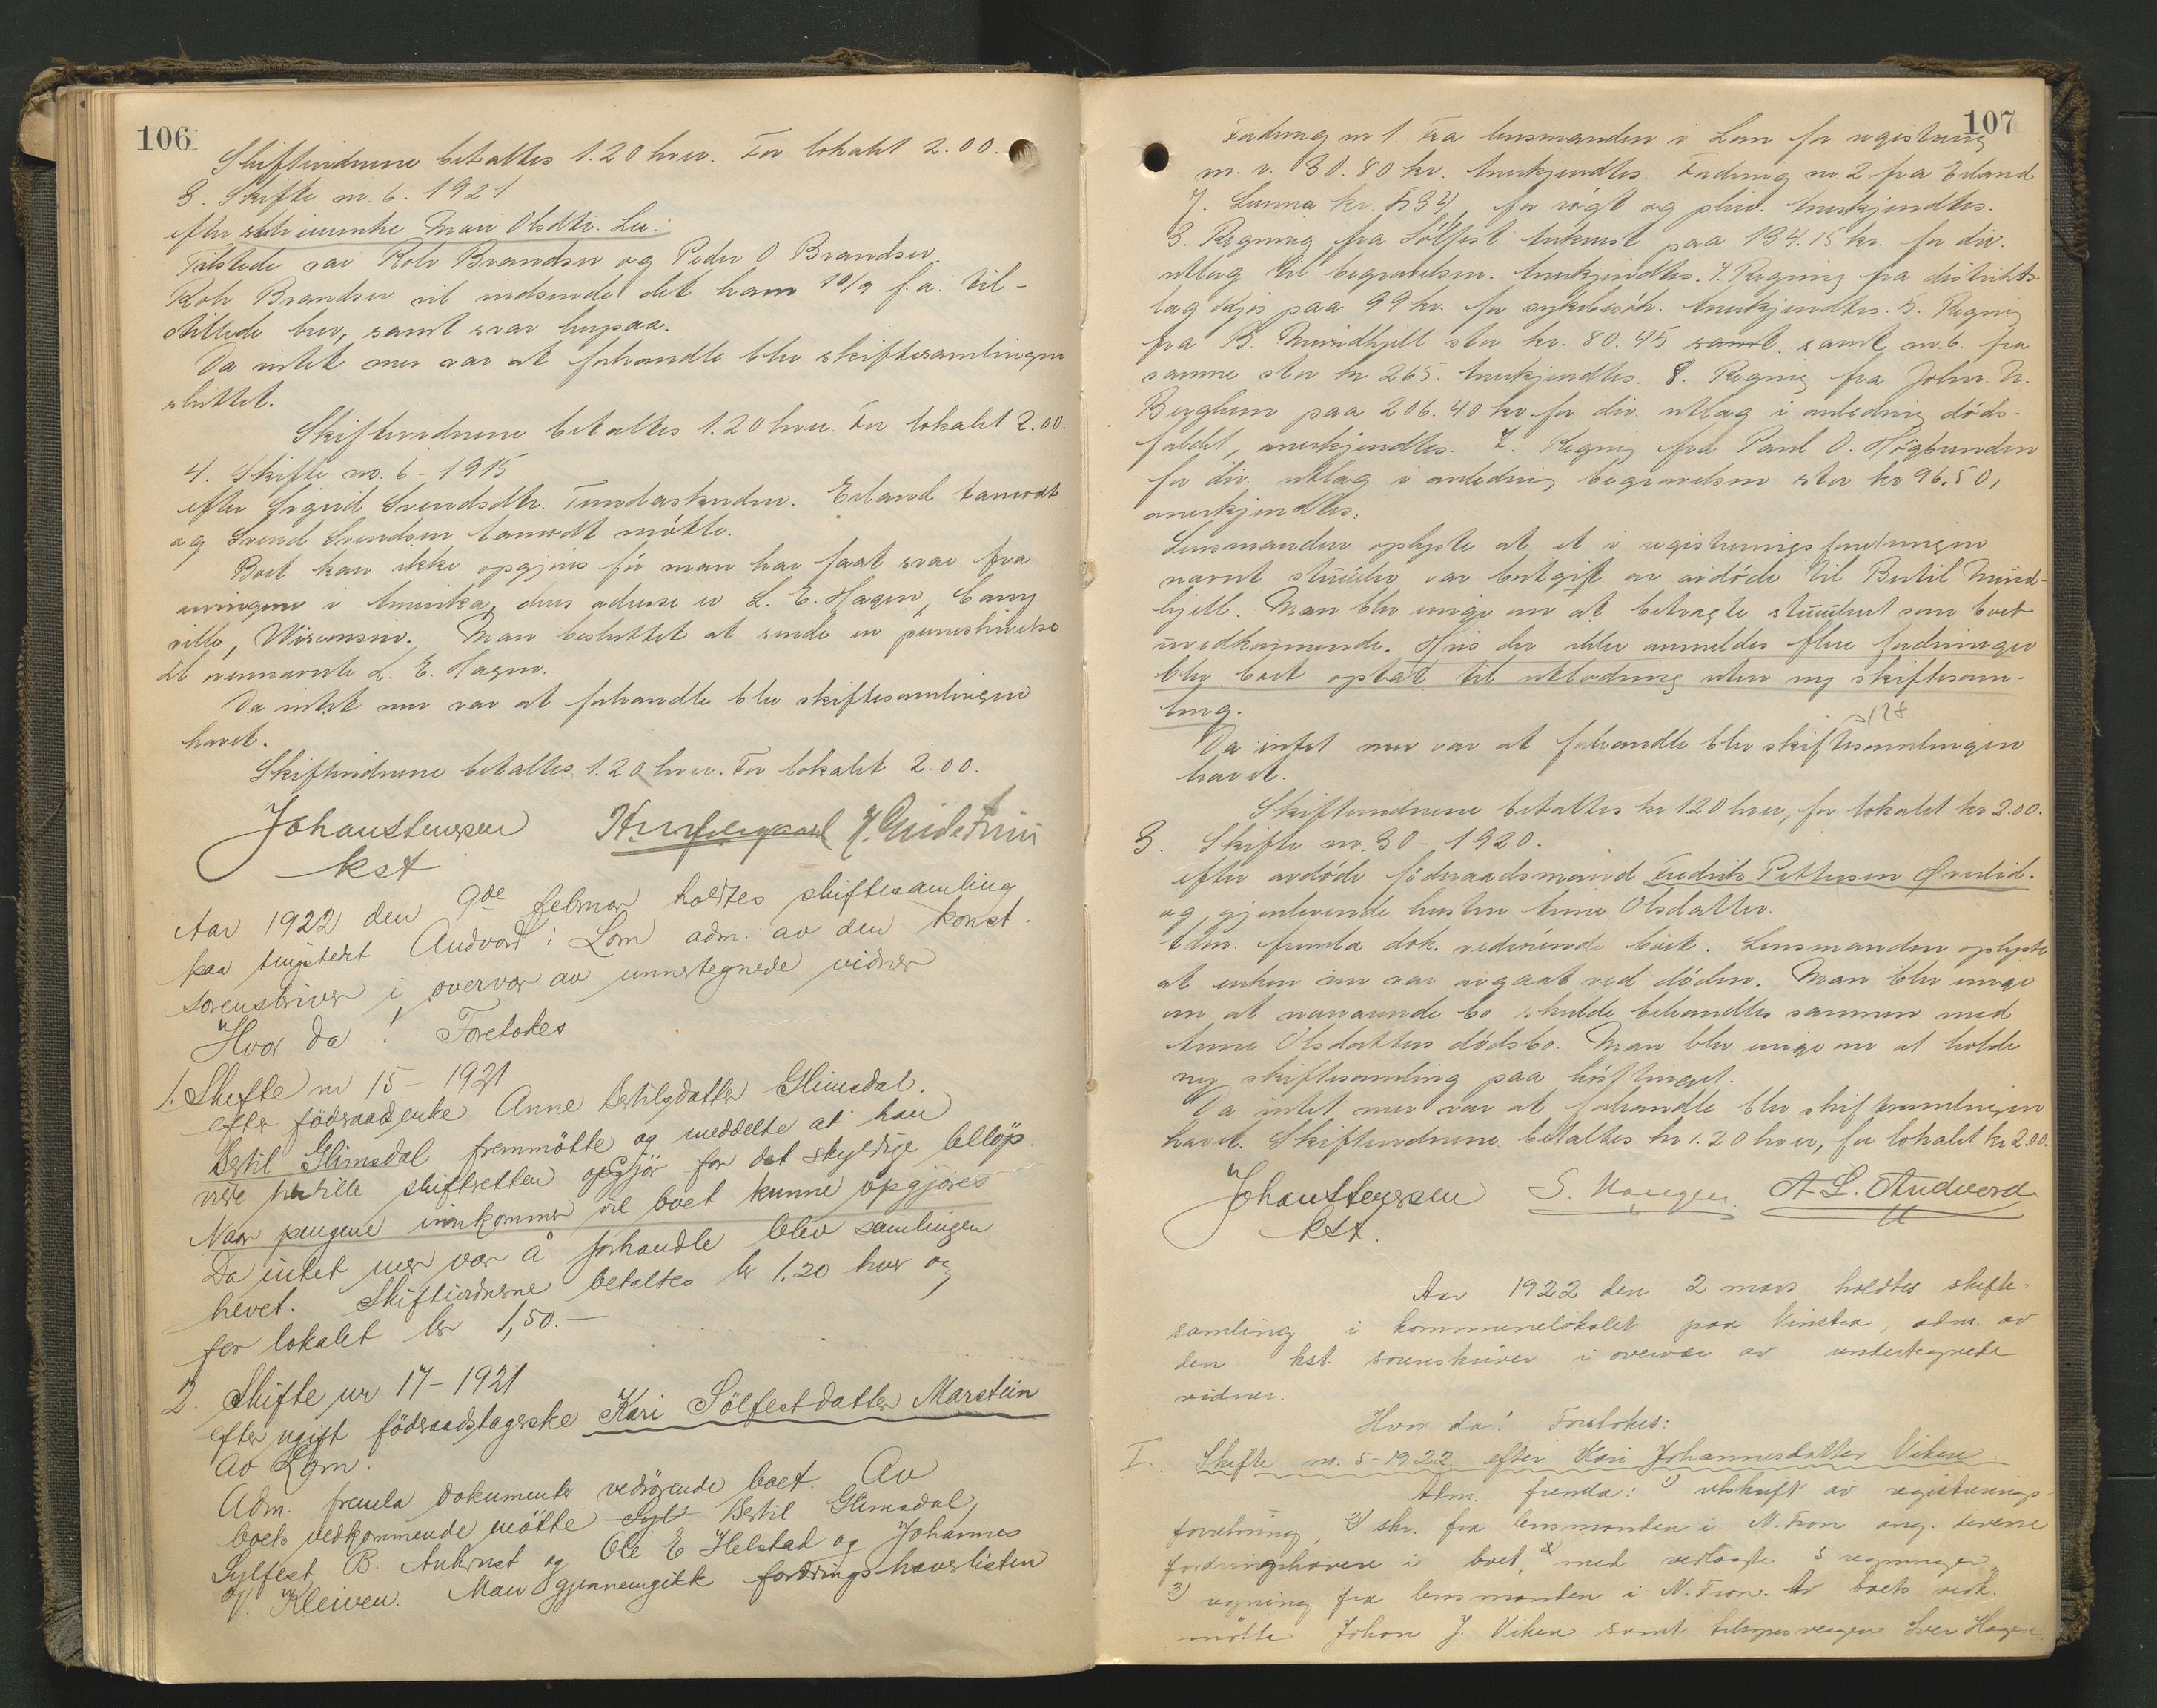 106
Skiftevidnene betaltes 1.20 hver. For lokalet 2.00.
3. Skifte nr. 6. 1921
efter Mari Olsdtr. Lu.
Tilstede var Rolv Brandser og Peder O. Brandser.
Rolv Brandser vil indsende det ham 10/9 f.a. til-
stillede brev, samt svar herpaa.
Da intet mer var at forhandle blev skiftesamlingen
sluttet.
Skiftevidnene betaltes 1.20 hver. For lokalet 2.00.
4. Skifte no. 6 - 1915
efter Sigrid Svendsdtr. Erland
og Svend Svendsen møtte.
Boet kan ikke opgjøres før man har faat svar fra
arvingen i Amerika, hvis adresse er L. E. Hagen,
ville, Wisconsin. Man besluttet at sende en
til L. E. Hagen.
Da intet mer var at forhandle blev skiftesamlingen
hævet.
Skiftevidnene betaltes 1.20 hver. For lokalet 2.00.
Johan Stenersen
kst
Aar 1922 den 9de februar holdtes skiftesamling
paa tingstedet Andvord i Lom adm. av den konst.
sorenskriver i overvær av unnertegnede vidner
Hvor da! Foretokes
1. Skifte nr 15 - 1921
efter föderaadsenke Anne Bertilsdatter Glimsdal.
Bertil Glimsdal fremmötte og meddelte at han
vilde tilstille skifteretten opgjör for det skyldige bellöp.
Naar pengene innkommer vil boet kunne opgjøres
Da intet mer var å forhandle blev samlingen
hevet. Skiftevidnene betaltes kr 1.20 hver og
for lokalet kr 1,50.-
2. Skifte nr 17 - 1921
efter ugift föderaadstagerske Kari Sölfestdatter Marstein
av Lom.
Adm. fremla dokumenter vedrörende boet. Av
boets vedkommende mötte Syl Bertil Glimsdal,
Sylfest B. Aukrust og Ole E Helstad og Johannes
V. Kleiven. Man gjennemgikk fordringshaverlisten
107
Fordring nr 1. Fra lensmanden i Lom for registrering
m. v. 30.80 kr. Anerkjendtes. Fordring nr. 2 fra Erland
for røgt og pleie. Anerkjendtes.
3. Regning fra Sölfest Aukrust paa 134.15 kr. for div.
utlæg til begravelsen. Anerkjendtes. 4. Regning fra distrikts-
læge paa 99 kr. for sykebesök. Anerkjendtes. 5. Regning
fra B. stor kr. 80.45 samt samt nr. 6. fra
samme stor kr 265. Anerkjendtes. 8. Regning fra John. N.
Bergheim paa 206.40 kr for div. utlæg i anledning döds-
faldet, anerkjendtes. 7. Regning fra Paul O. Högbrunden
for div. utlæg i anledning begravelsen stor kr 96.50,
anerkjendtes.
Lensmanden oplyste at et i registreringsforretningen
nævnt var bortgit av avdöde til Bertil
Man blev enige om at betragte som boet
uvedkommende. Hvis der ikke anmeldes flere fordringer
blir boet optat til utlodning uten ny skiftesam-
ling.
Da intet mer var at forhandle blev skiftesamlingen
hævet.
Skiftevidnene betaltes kr 1.20 hver, for lokalet kr 2.00.
3. Skifte nr. 30 - 1920.
efter avdöde föderaadsmand Fredrik Pettersen Øvrelid.
og gjenlevende hustru Anne Olsdatter.
Adm. fremla dok. vedrørende boet. Lensmanden oplyste
at enken nu var avgaat ved døden. Man blev enige
om at nærværende bo skulde behandles sammen med
Anne Olsdatters dödsbo. Man blev enige om at holde
ny skiftesamling paa hösttinget.
Da intet mer var at forhandle blev skiftesamlingen
hævet. Skiftevidnene betaltes kr 1.20 hver, for lokalet kr 2.00.
Johan Stenersen S. Haugen A L. Andvord
kst.
Aar 1922 den 2 mars holdtes skifte-
samling i kommunelokalet paa Vinstra, adm. av
den kst. sorenskriver i overvær av undertegnede
vidner.
Hvor da! Foretokes:
I. Skifte nr. 5 - 1922 efter Kari Johannesdatter Viken.
Adm. fremla: 1) utskrift av registrerings-
forretning, 2) skr. fra lensmanden i N. Fron ang. diverse
fordringshavere i boet, med vedlagte 5 regninger
3) regning fra lensmanden i N. Fron. Av boets vedk.
mötte Johan J. Viken samt tilsynsvergen Iver Hagen.